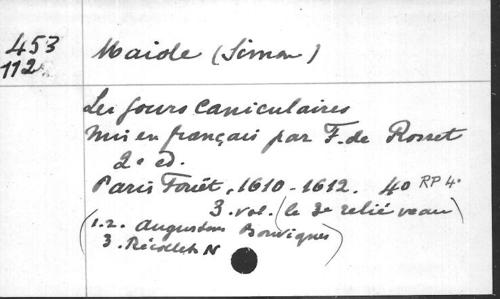 453
112
Maiole (Simon)
Les jours caniculaires
mis en français par F. de Rosset
2e éd.
Paris Fouët, 1610-1612. 4o RP 4.
3. vol. (le 3e relié veau)
(1.2. Augustins Bouvignes)
3. Récollets N